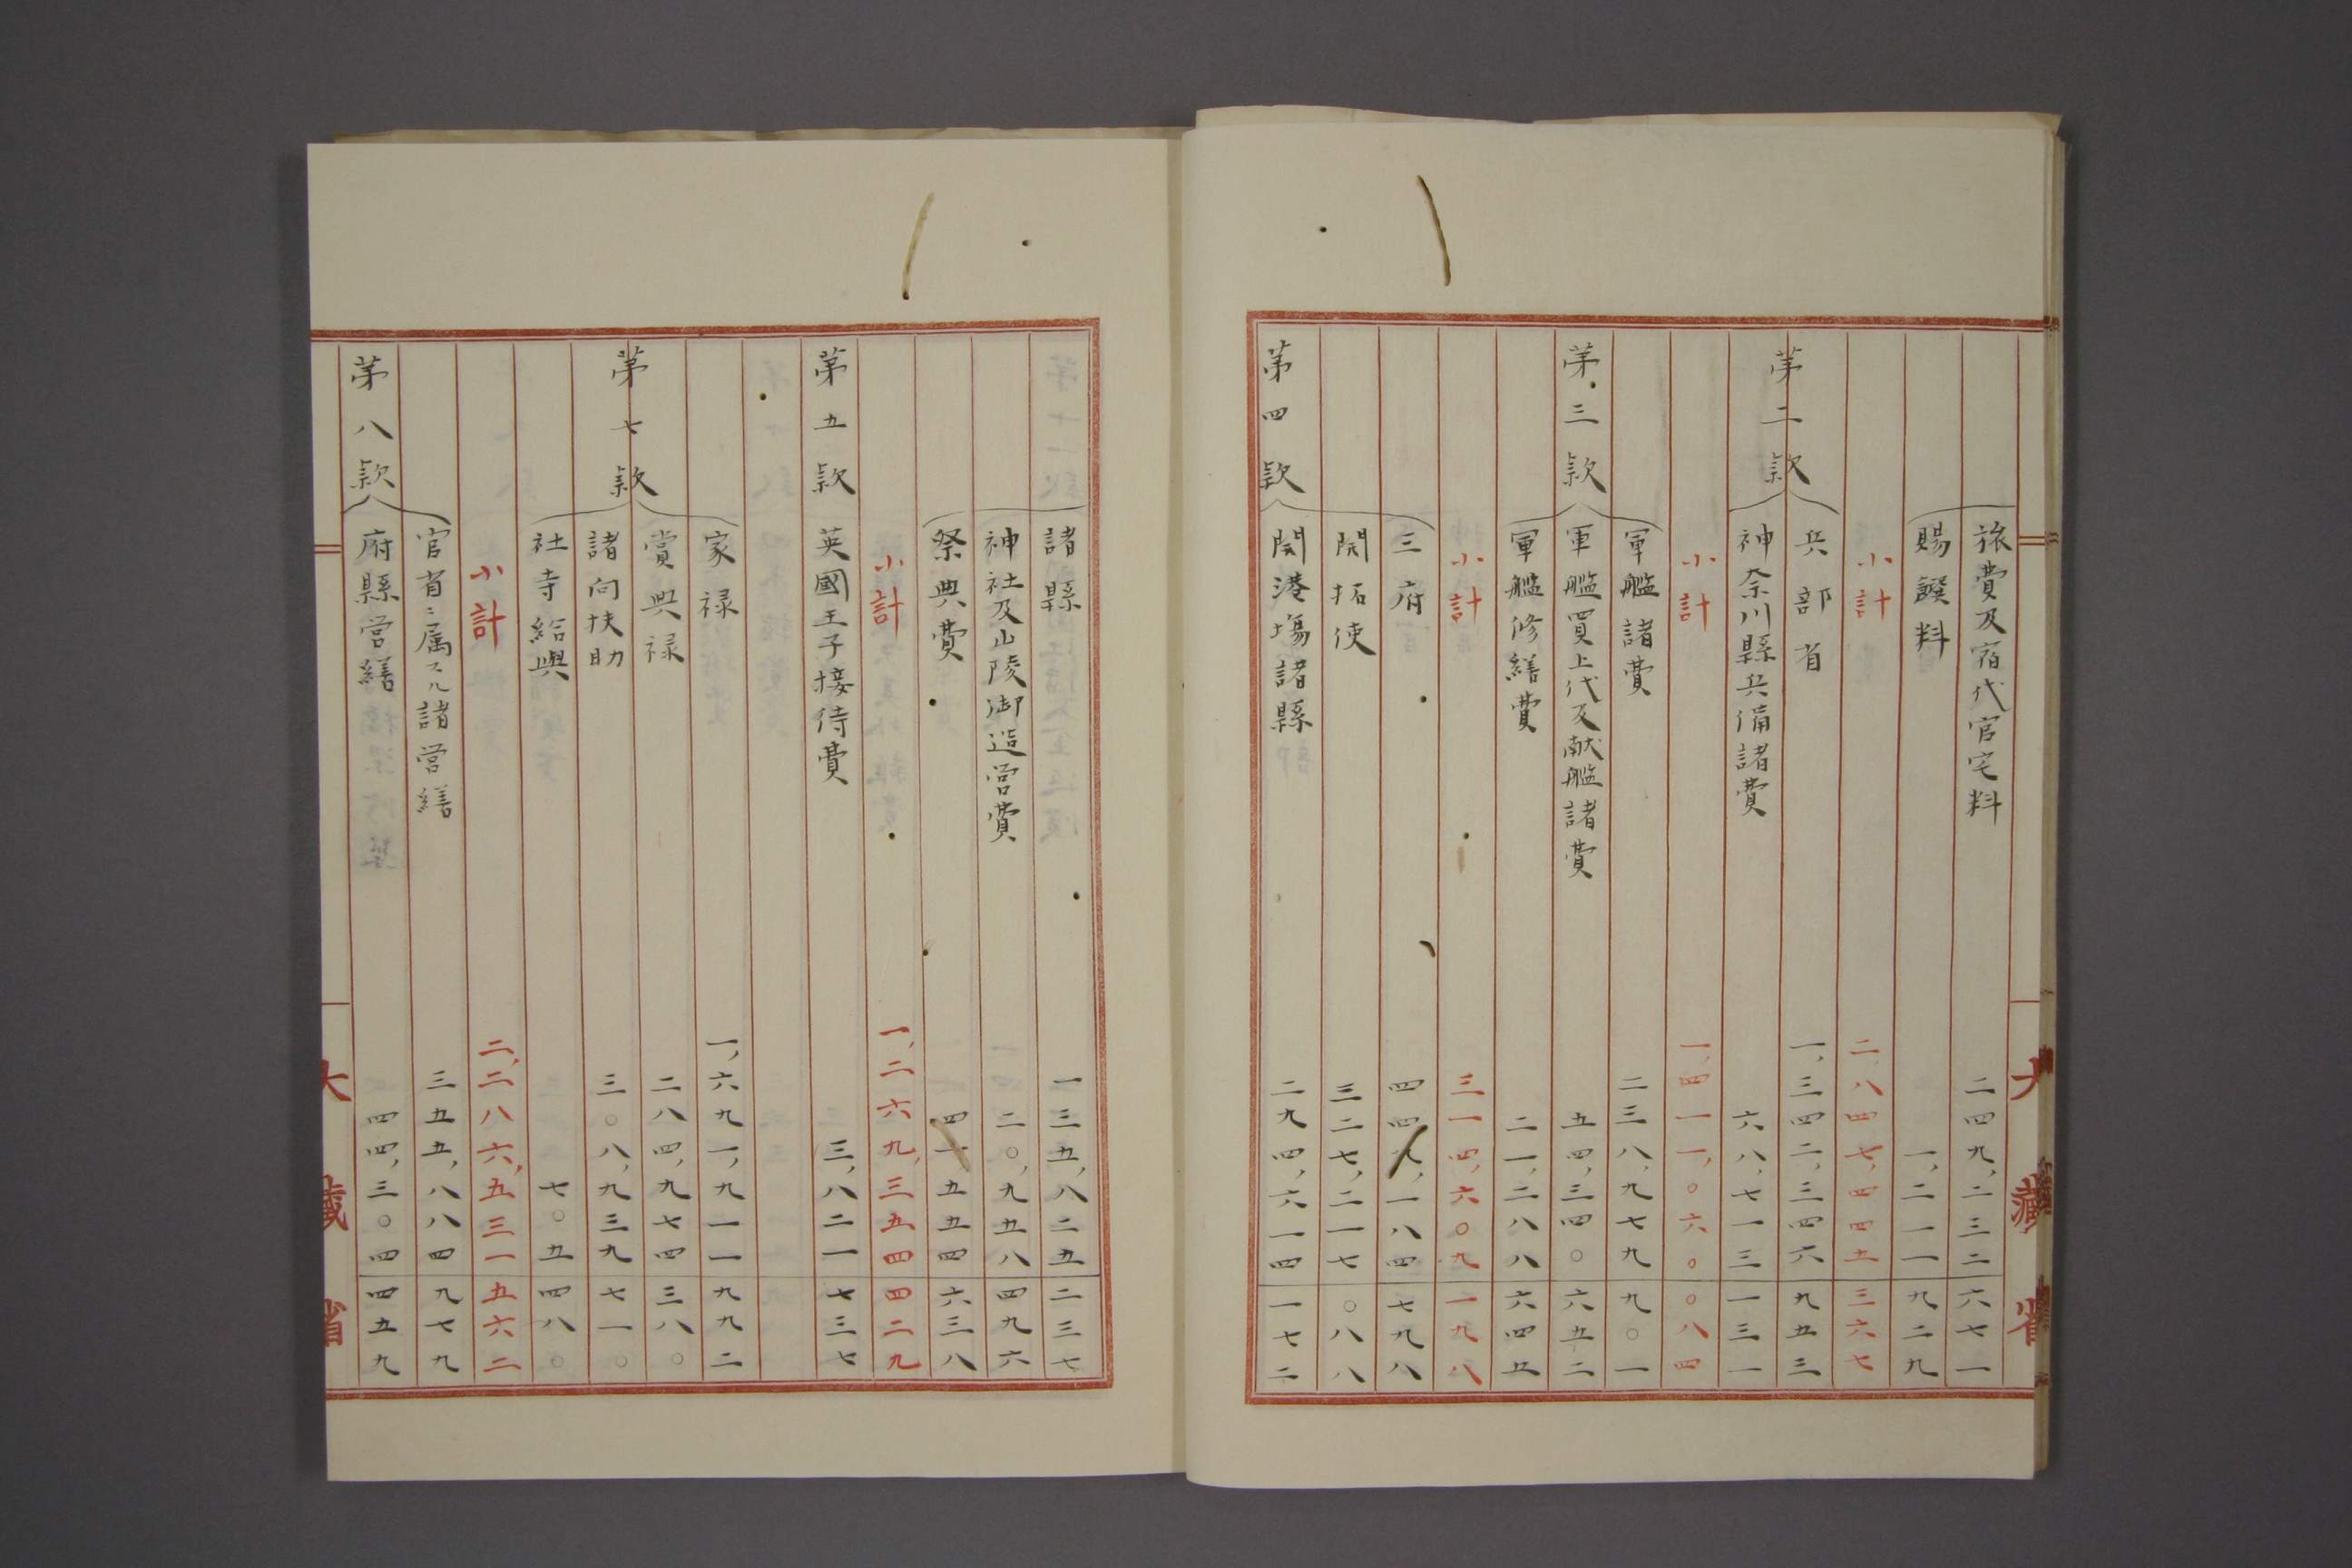 旅費及宿代官宅料 二四九,二三二六七一
賜饌料 一,二一一九二九
小計 二,八四七,四四五三六七
第二款
兵部省 一,三四二,三四六九五三
神奈川縣兵備諸費 六八,七一三一三一
小計 一,四一一,〇六〇〇八四
第三款
軍艦諸費 二三八,九七九九〇一
軍艦買上代及献艦諸費 五四,三四〇六五二
軍艦修繕費 二一,二八八六四五
小計 三一四,六〇九一九八
第四款
三府 四四九,一八四七九八
開拓使 三二七,二一七〇八八
開港場諸縣 二九四,六一四一七二
大藏省
諸縣 一三五,八二五二三七
神社及山陵御造営費 二〇,九五八四九六
祭典費 四一,五五四六三八
小計 一,二六九,三五四四二九
第五款 英國王子接待費 三,八二一七三七
第七款
家禄 一,六九一,九一一九九二
賞典禄 二八四,九七四三八〇
諸向扶助 三〇八,九三九七一〇
社寺給與 七〇五四八〇
小計 二,二八六,五三一五六二
第八款
官省ニ属スル諸営繕 三五五,八八四九七九
府縣営繕 四四,三〇四四五九
大藏省